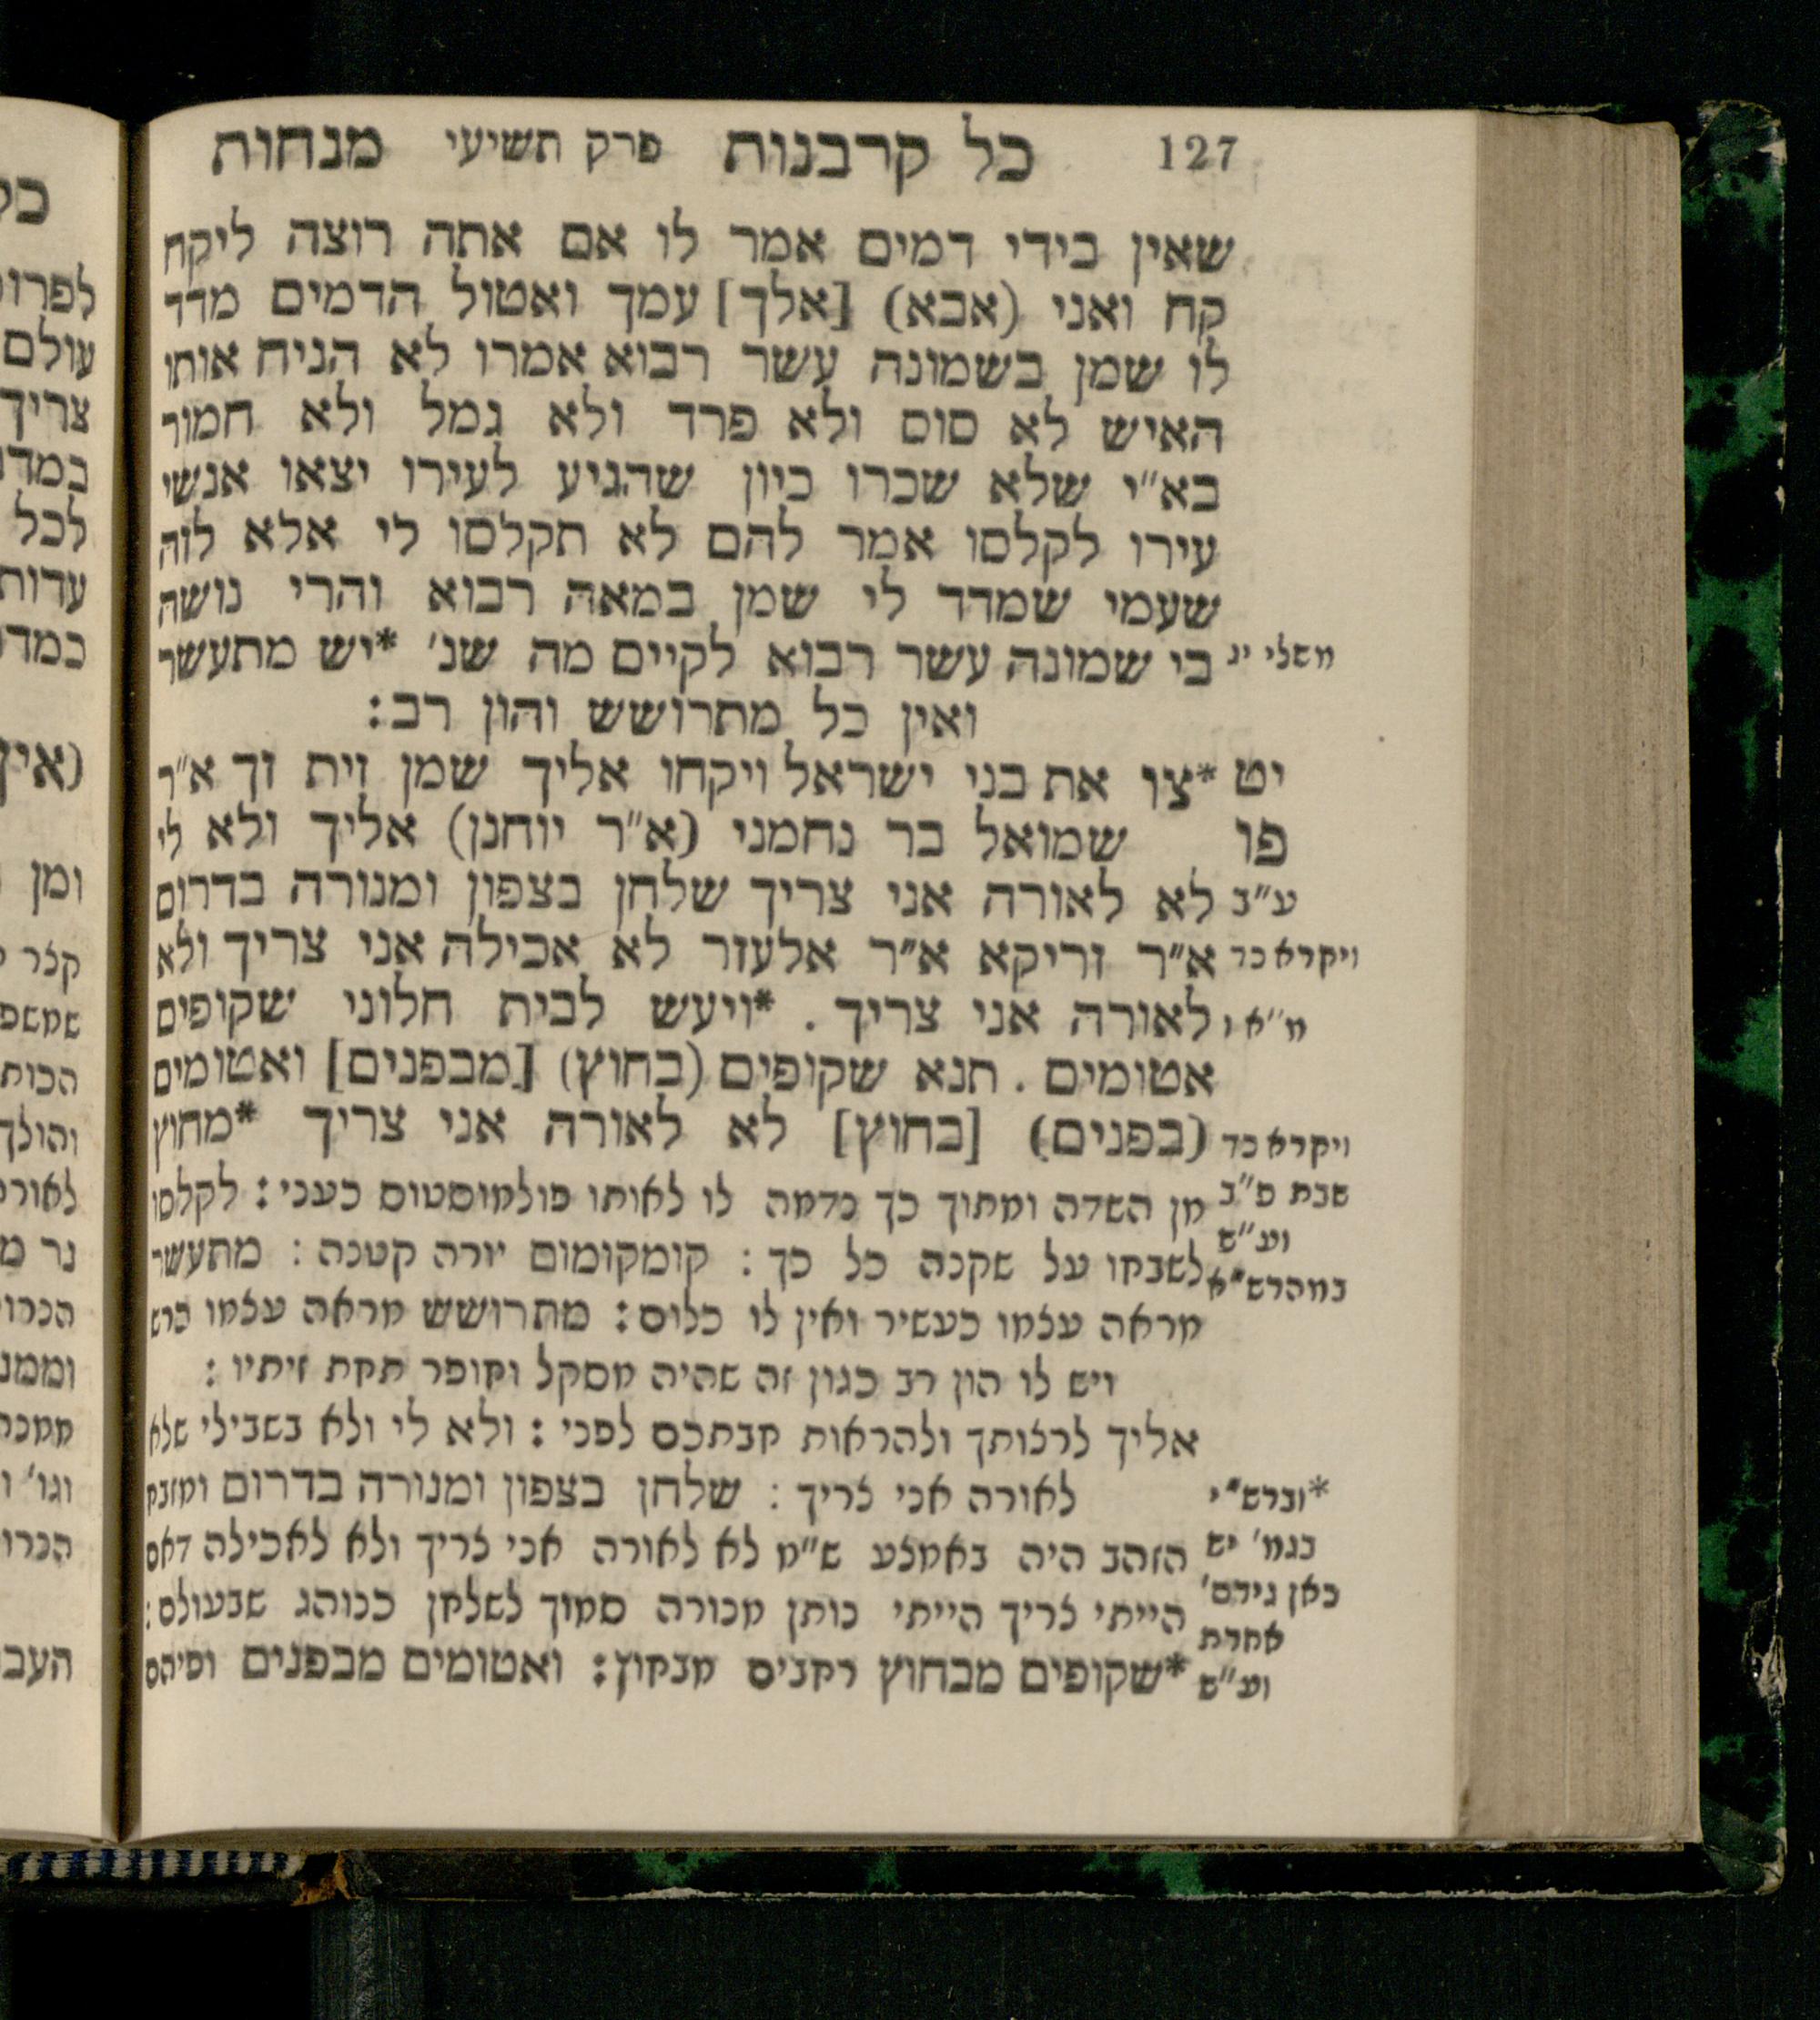 127 כל קרבנות פרק תשיעי מנחות
שאין בידי דמים אמר לו אם אתה רוצה ליקח
קח ואני (אבא) [אלך] עמך ואטול הדמים מדד
לו שמן בשמונה עשר רבוא אמרו לא הניח אותו
האיש לא סוס ולא פרד ולא גמל ולא חמור
בא״י שלא שכרו כיון שהגיע לעירו יצאו אנשי
עירו לקלסו אמר להם לא תקלסו לי אלא לזה
שעמי שמדד לי שמן במאה רבוא והרי נושה
משלי יג בי שמונה עשר רבוא לקיים מה שנ׳ *יש מתעשר
ואין כל מתרושש והון רב:
יט *צו את בני ישראל ויקחו אליך שמן זית זך א״ר
פו שמואל בר נחמני (א״ר יוחנן) אליך ולא לי
ע״ב לא לאורה אני צריך שלחן בצפון ומנורה בדרום
ויקרא כד א״ר זריקא א״ר אלעזר לא אכילה אני צריך ולא
מ״א ו לאורה אני צריך. *ויעש לבית חלוני שקופים
אטומים. תנא שקופים (בחוץ) [מבפנים] ואטומים
ויקרא כד (בפנים) [בחוץ] לא לאורה אני צריך *מחוץ
שבת פ״ב מן השדה ומתוך כך נדמה לו לאותו פולמוסטוס כעני: לקלסו
וע״ש
במהרש״א לשבחו על שקנה כל כך: קומקומום יורה קטנה: מתעשר
מראה עצמו כעשיר ואין לו כלום: מתרושש מראה עצמו כרש
ויש לו הון רב כגון זה שהיה מסקל וחופר תחת זיתיו:
אליך לרצותך ולהראות חבתכם לפני: ולא לי ולא בשבילי שלא
*וברש״י לאורה אני צריך: שלחן בצפון ומנורה בדרום ומזבח
בגמ׳ יש הזהב היה באמצע ש״מ לא לאורה אני צריך ולא לאכילה דאם
כאן גירס׳ הייתי צריך הייתי נותן מנורה סמוך לשלחן כנוהג שבעולם:
אחרת
וע״ש *שקופים מבחוץ רחבים מבחוץ: ואטומים מבפנים וסיהם